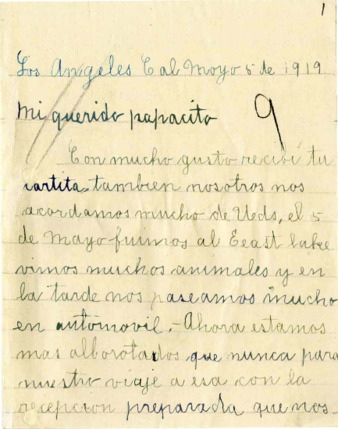 1
Los Angeles Cal Mayo 5 de 1919
Mi querido papacito 9
Con mucho gusto recibí tu
cartita tambien nosotros nos
acordamos mucho de Ueds, el 5
de Mayo fuimos al Eeast lake
vimos muchos animales y en
la tarde nos paseamos mucho
en automovil.- Ahora estamos
mas alborotados que nunca para
nuestro viaje a esa con la
recepcion preparada que nos